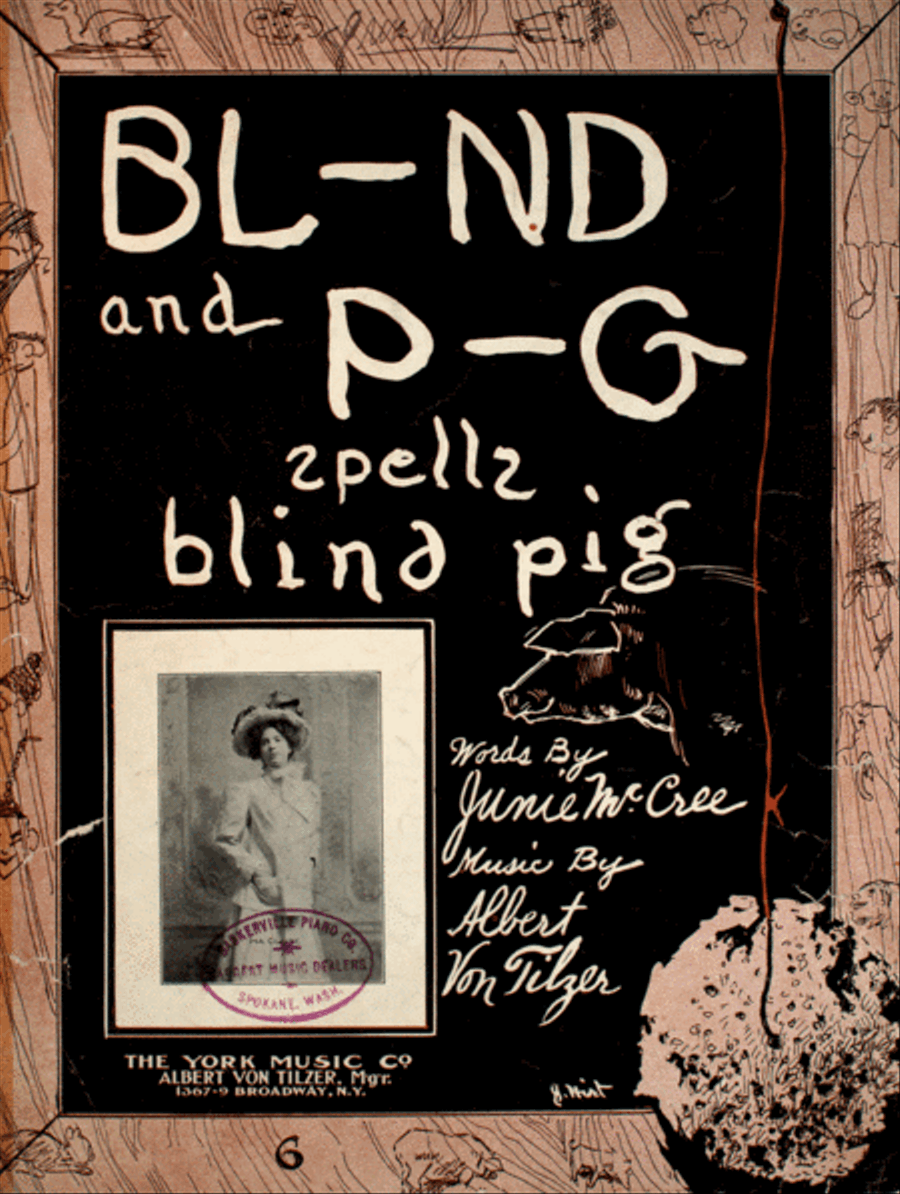 BL-ND
and P-G
spells
blind pig
Words By
Junie Mc. Cree
Music By
Albert
Von Tilzer
PIANO CO.
MUSIC DEALERS
SPOKANE, WASH.
THE YORK MUSIC Co
ALBERT VON TILZER, Mgr.
1367-9 BROADWAY, N.Y.
J. Hirt
6